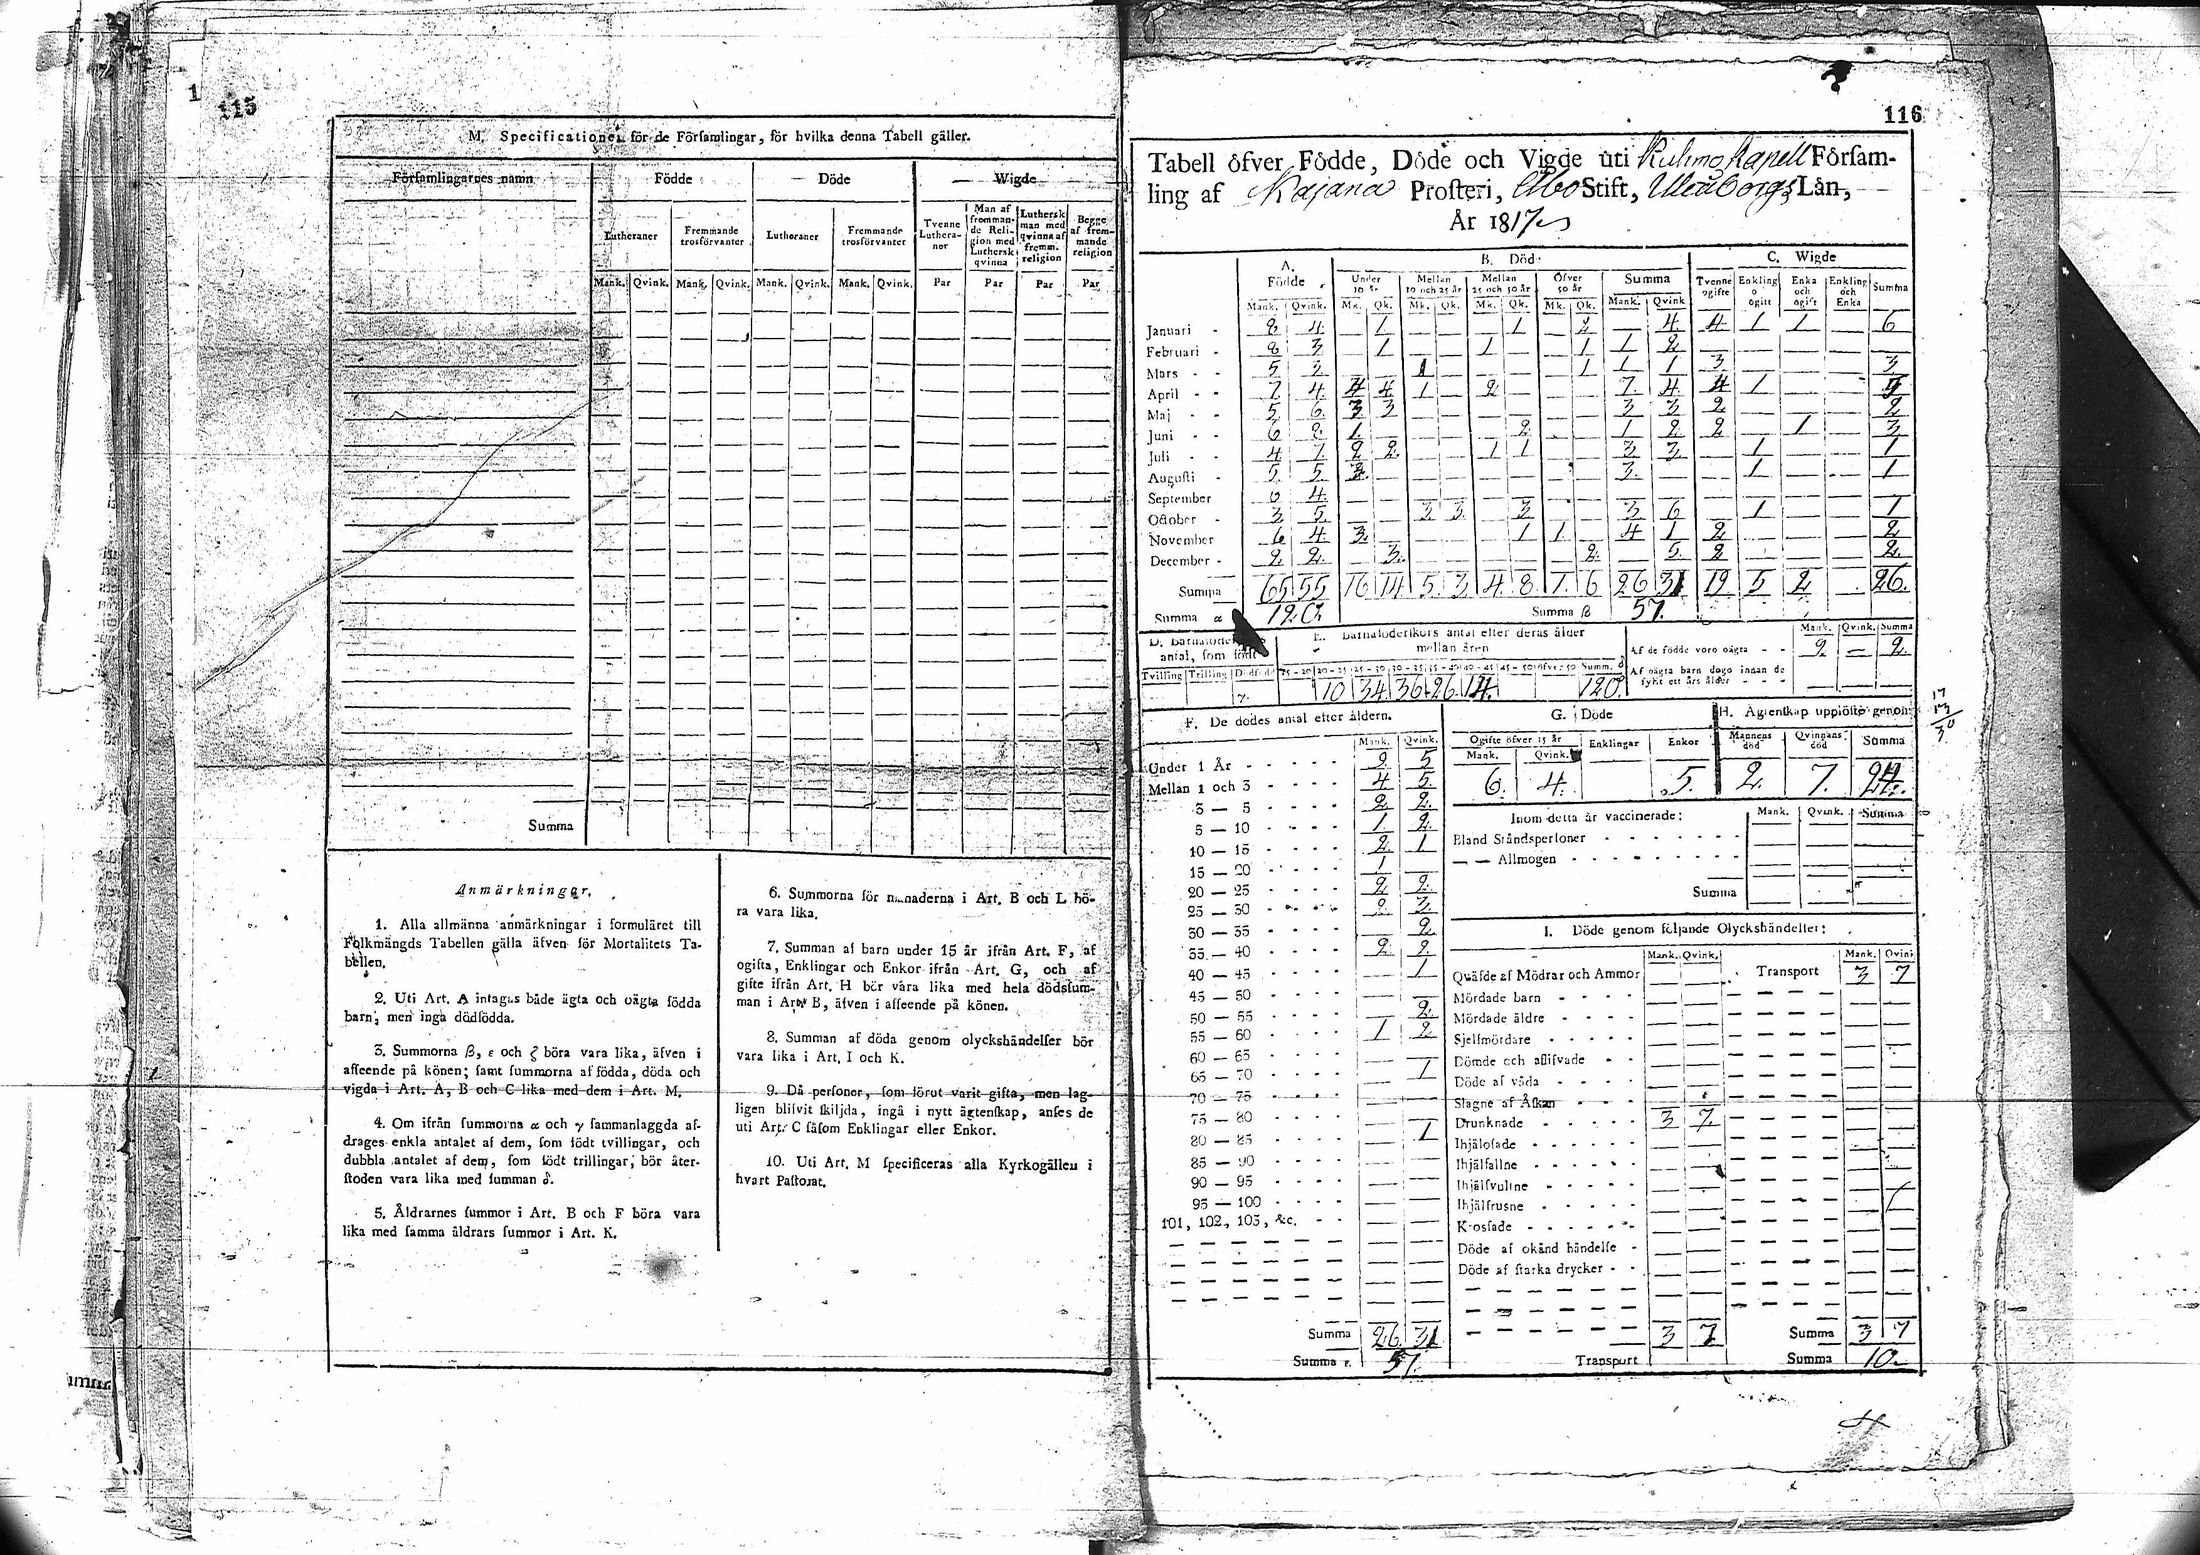 115
M. Specificationer för de Församlingar, för hvilka denna Tabell gäller.
Församlingarnes namn Födde Döde Wigde
Lutheraner Fremmande trosförvanter Lutheraner Fremmande trosförvanter Tvenne Lutheranor Man af fremmande Religion med Luthersk qvinna Luthersk man med qvinna af fremm. religion Begge af fremmande religion
Mank. Qvink. Mank. Qvink. Mank. Qvink. Mank. Qvink. Par Par Par Par
Summa
Anmärkningar.
1. Alla allmänna anmärkningar i formuläret till
Folkmängds Tabellen gälla äfven för Mortalitets Ta-
bellen.
2. Uti Art. A intagas både ägta och oägta födda
barn, men inga dödfödda.
3. Summorna β, ε och ζ böra vara lika, äfven i
afseende på könen; samt summorna af födda, döda och
vigda i Art. A, B och C lika med dem i Art. M.
4. Om ifrån summorna α och γ sammanlagda af-
drages enkla antalet af dem, som födt tvillingar, och
dubbla antalet af dem, som födt trillingar, bör åter-
stoden vara lika med summan δ.
5. Åldrarnes summor i Art. B och F böra vara
lika med samma åldrars summor i Art. K.
6. Summorna för månaderna i Art. B och L bö-
ra vara lika.
7. Summan af barn under 15 år ifrån Art. F, af
ogifta, Enklingar och Enkor ifrån Art. G, och af
gifte ifrån Art. H bör vara lika med hela dödssum-
man i Art. B, äfven i afseende på könen.
8. Summan af döda genom olyckshändelser bör
vara lika i Art. I och K.
9. Då personer, som förut varit gifta, men lag-
ligen blifvit skiljda, ingå i nytt ägtenskap, anses de
uti Art. C såsom Enklingar eller Enkor.
10. Uti Art. M specificeras alla Kyrkogällen i
hvart Pastorat.
116
Tabell öfver Födde, Döde och Vigde uti Kuhmo Kapell Församling af Kajana Prosteri, Åbo Stift, Uleåborgs Län,
År 1817
A. Födde B. Döde C. Wigde
Under 10 år Mellan 10 och 25 år Mellan 25 och 50 år Öfver 50 år Summa Tvenne ogifte Enkling o ogift Enka och ogift Enkling och Enka Summa
Mank. Qvink. Mk. Qk. Mk. Qk. Mk. Qk. Mk. Qk. Mank. Qvink
Januari 8 4 — 1 — — — 1 — 2 — 4 4 1 1 — 6
Februari 8 3 — 1 — — 1 — — 1 1 2
Mars 5 1 1 1 1 3 3
April 7 4 4 4 1 — 2 — — — 7 4 4 1 5
Maj 5 6 3 3 — — — — — — 3 3 2 2
Juni 6 1 2 1 2 2 1 3
Juli 4 7 2 2 — — 1 1 — — 3 3 — 1 1
Augusti 5 5 3 1 1
September 4
October 3 5 — — 3 3 — 3 — — 3 6 — 1 1
November 6 4 3 — — — — 1 1 — 4 1 2 2
December 2 2 — 3 — — — — — 2 — 5 2 2
Summa 65 55 16 14 5 3 4 8 1 6 26 31 19 5 2 26
Summa α 120 Summa β 57
antal, som födt
Tvilling Trilling
E. Barnaföderskors antal efter deras ålder
mellan åren
10 34 36 26 14 120
Mank. Qvink. Summa
Af de födde voro oägta 2 — 2
Af oägta barn dogo innan de
fyllt ett års ålder
17
13
30
F. De dödes antal efter åldern.
Mank. Qvink.
Under 1 År 2 5
Mellan 1 och 3 4 5
3 — 5 2 2
5 — 10 1 2
10 — 15 2 1
15 — 20 1
20 — 25 2 2
25 — 30 3
30 — 35 2
35 — 40 2 2
40 — 45 — 1
45 — 50
50 — 55 2
55 — 60 1 2
60 — 65
65 — 70 1
70 — 75
75 — 80
80 — 85 1
85 — 90
90 — 95
95 — 100
101, 102, 103, &c.
Summa 26 31
Summa ε. 57
G. Döde
Ogifte öfver 15 år Enklingar Enkor
Mank. Qvink.
6 4 5
H. Ägtenskap upplöste genom
Mannens död Qvinnans död Summa
2 7
Inom detta år vaccinerade: Mank. Qvink. Summa
Bland Ståndspersoner
— — Allmogen
Summa
I. Döde genom följande Olyckshändelser:
Mank. Qvink. Mank. Qvink
Qväfde af Mödrar och Ammor Transport 3 7
Mördade barn
Mördade äldre
Sjelfmördare
Dömde och aflifvade
Döde af våda
Slagne af Åskan
Drunknade 3 7
Ihjälosade
Ihjälfallne
Ihjälsvultne
Ihjälfrusne
Krossade
Döde af okänd händelse
Döde af starka drycker
3 7 Summa 3 7
Transport Summa 10